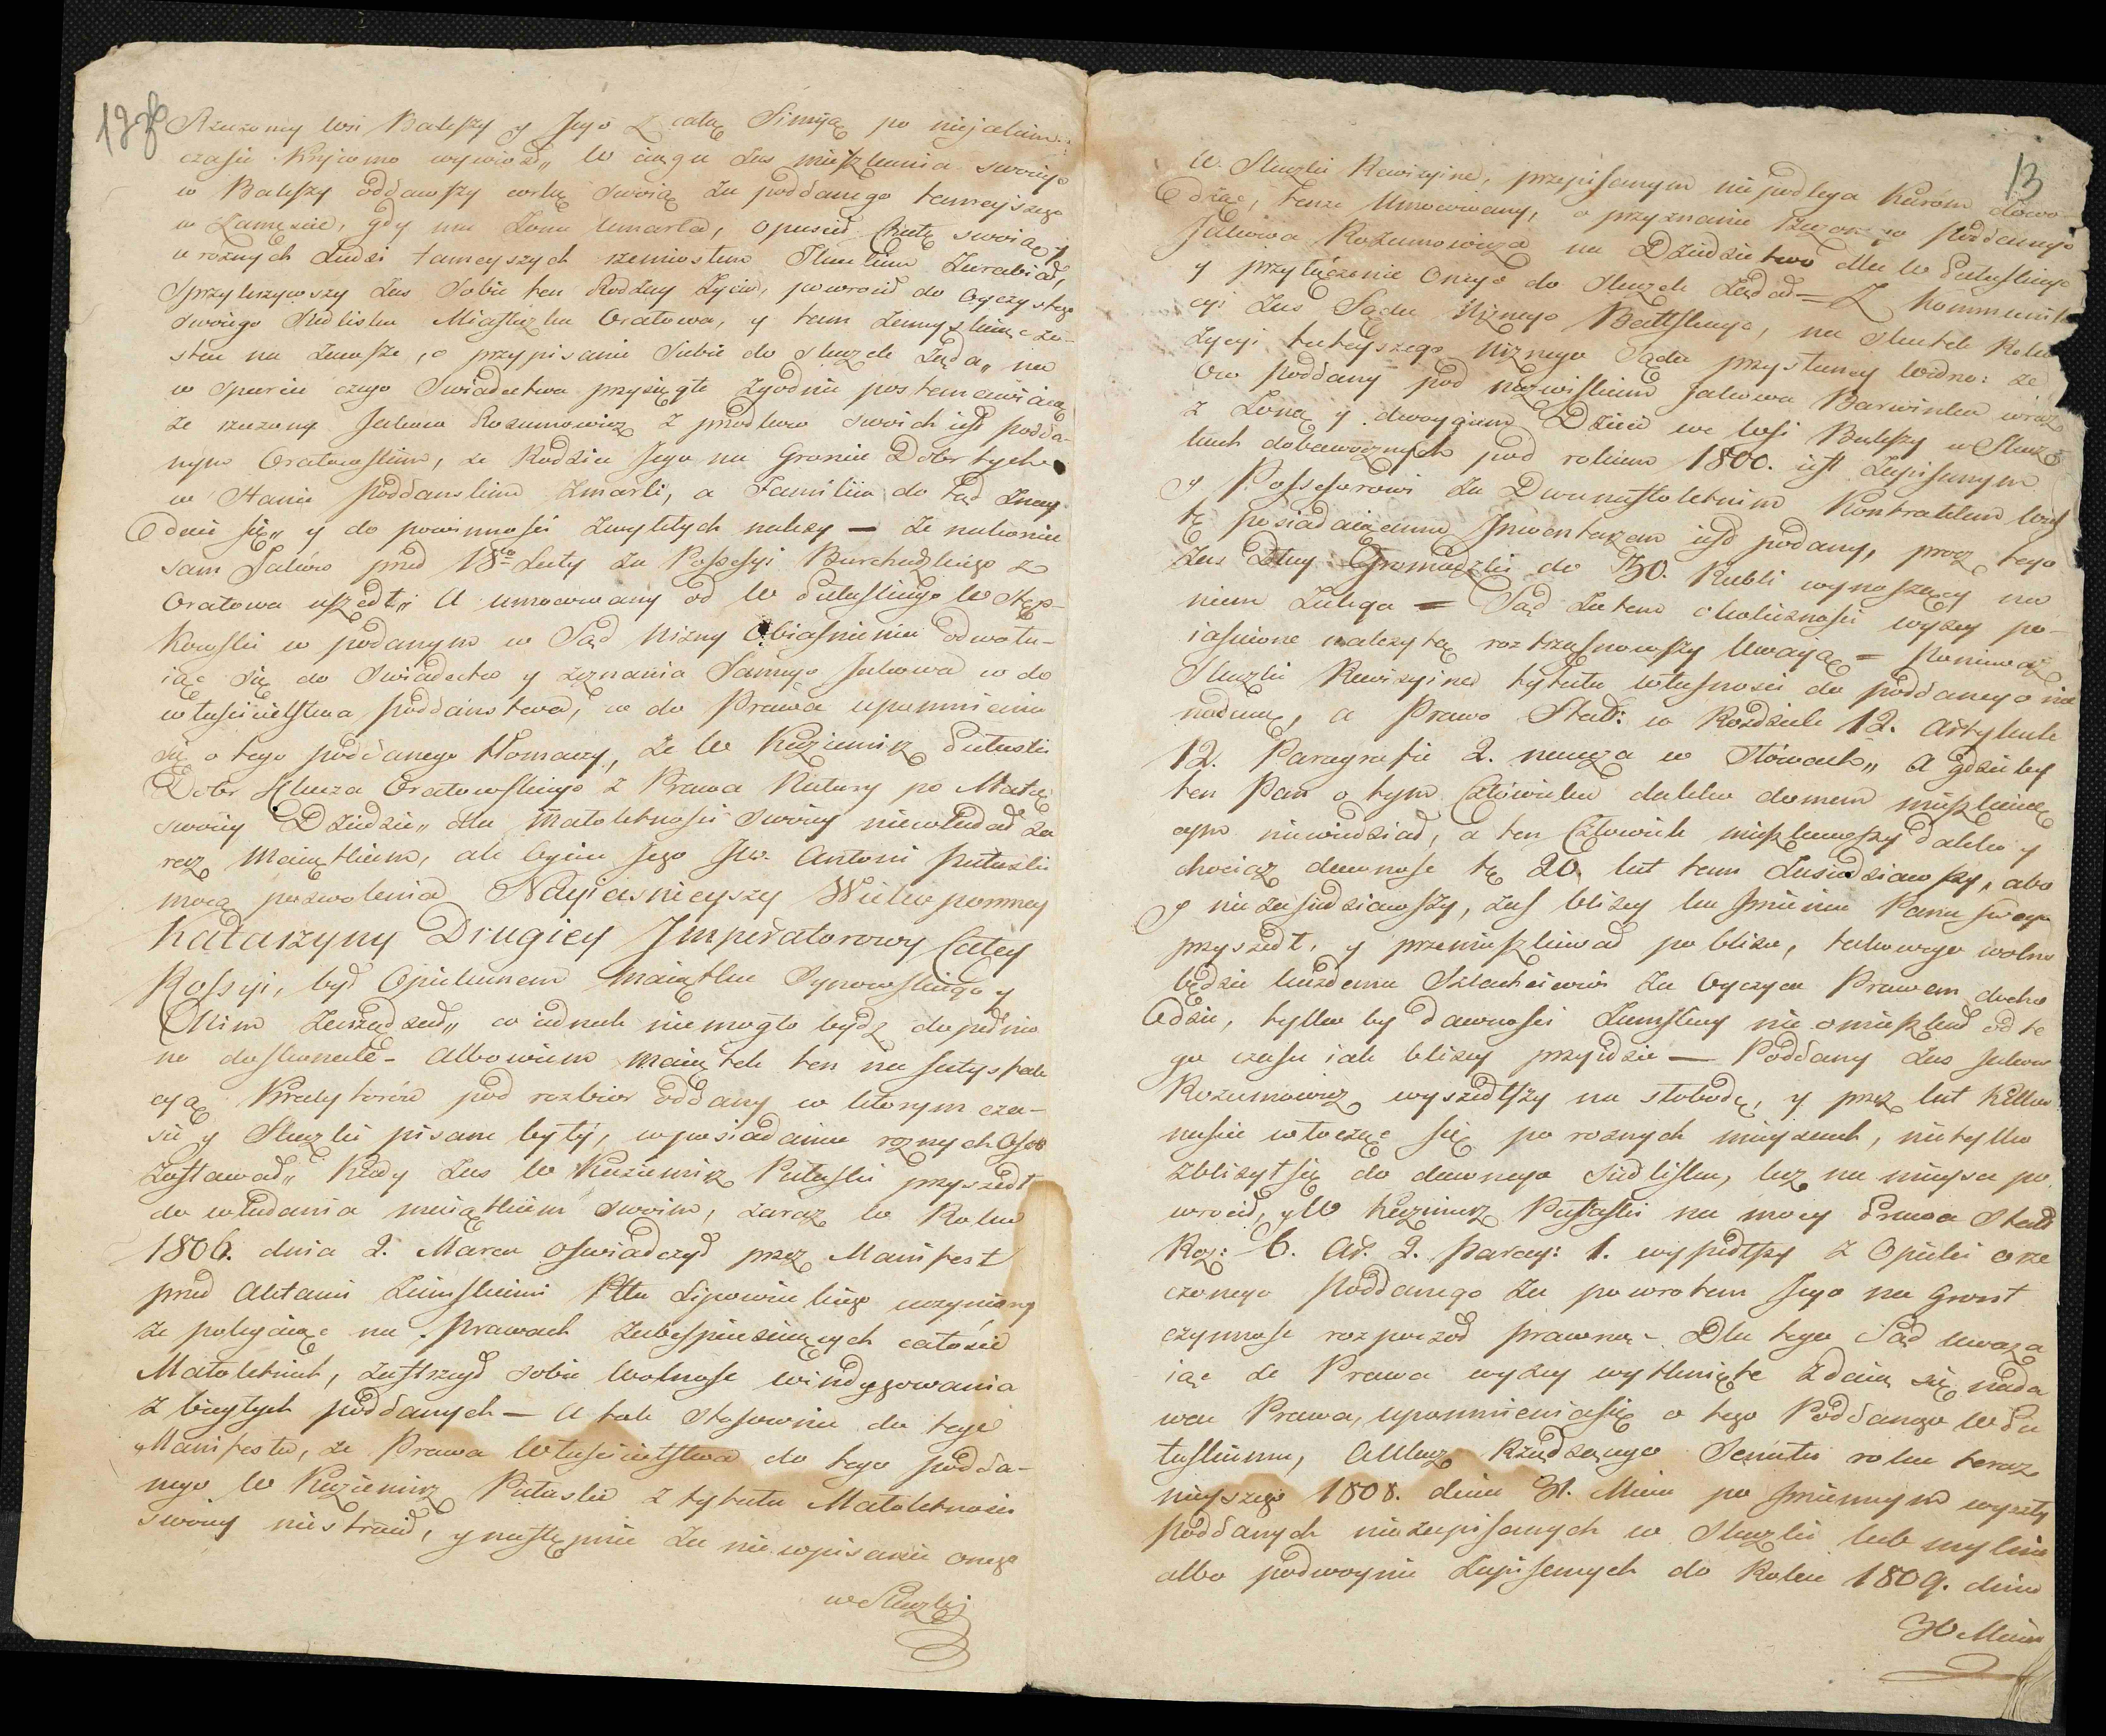 12
Rzeczony wsi Bałeszy y Jego z całą Fimiją po niejakim
czasie Kryiomo wywiozł„ W ciągu zas mieszkania swoiego
w Bałeszy oddawszy corkę swoią za poddanego tamejszego
w Zamęscie, gdy mu Zona umarła, opuscił Chatę swoią y
u roznych Ludzi tameyszych rzemiosłem Zarabiał,
Sprzykrzywszy Zas Sobie ten Rodzay Zycia, powrocił do Oyczystego
swoiego Siedliska Miasteczka Oratowa, y tam
na zawsze, o przypisanie Siebie do skazek Ząda„ na
w sparcie czego Swiadectwa przysięgłe Zgodnie postanawiaią
ze rzeczony Jakow Rozumowicz z przodkow swoich iest podda-
nym Oratowskim, ze Rodzice Jego na Groncie Dobr tych
w Stanie Poddanskim zmarli, a Familia do tąd znay-
duie się„ y do powinnosci zwykłych nalezy — Ze nakoniec
sam Jakow przed 18cią Laty za Possesyi Burchackiego z
Oratowa uszedł„ A umocowany od W Pułaskiego W Stęp-
kowski w podanym w Sąd Nizny Obiasnieniu odwołu-
iąc się do Swiadectw y zeznania Samego Jakowa co do
włascicielstwa poddanstwa, co do Prawa upomnienia
się o tego poddanego tłomaczy, ze W Kazimierz Pułaski
Dobr Klucza Oratowskiego z Prawa Natury po Matce
swoiey Dziedzic„ dla małoletnosci swoiey niewładał za
raz Maiątkiem, ale Oyciec Jego JW. Antoni Pułaski
mocą pozwolenia Nayiasnieyszey Wielce pomney
Katarzyny Drugiey Imperatorowy Całey
Rossyi, był Opiekunem Maiątku Synowskiego y
Onim Zarządzał„ co iednak niemogło bydz dopełnio
ne doskonale - Albowiem Maiątek ten na satysfak
cyą Kredytorów pod rozbior oddany w ktorym cza-
sie y Skazki pisane były, w posiadaniu roznych Osob
Zostawał„ Kiedy zas W Kazimierz Pułaski przyszedł
do władania maiątkiem swoim, zaraz W Roku
1806. dnia 2. Marca oswiadczył przez Manifest
przed Aktami Ziemskiemi Pttu Lipowieckiego uczyniony
ze polegaiąc na Prawach zabespieczaiących całosc
Małoletnich, zastrzegł sobie wolnosc windygowania
zbiegłych poddanych — A tak stosownie do tego
Manifestu, ze Prawa Własciicielstwa do tego podda-
nego W Kazimierz Pułaski z tytułu Małoletnosci
swoiey niestracił, y następnie za nie wpisanie onego
w Skazki
13
w Skazki Rewizyine, przepisanym niepodlega Karóm dowo-
dząc, tenze Umocowany, o przyznanie rzeczonego Poddanego
Jakowa Rozumowicza na Dziedzictwo dla W Pułaskiego
y przyłączenie Onego do Skazek Ządał — Z Kommunika
cyi zas Sądu Niznego Baltskiego, na skutek Rekw
izycyi tuteyszego nizniego Sądu przysłaney widno: ze
ow poddany pod nazwiskiem Jakowa Barwinka wraz
z Zoną y dwoygiem Dzieci we wsi Bałeszy w Skaz
kach dobawocznych pod rokiem 1800. iest Zapisanym
y Possesorowi za Dwunastoletnim Kontraktem Wieś
tę posiadaiącemu Inwentarzem iest podany, procz tego
Zas Dług Gromadzki do 30. Rubli wynoszący na
niem Zalega = Sąd zatem okolicznosci wyzey po-
iasnione nalezytą roztrząsnąwszy uwagą = Poniewaz
Skazki Rewizyine tytułu własnosci do poddanego nie
nadaią, a Prawo Stat: w Rozdziale 12. Artykule
12. Paragrafie 2. naucza w Słowach„ A gdzieby
ten Pan o tym Człowieku daleko domem mieszkaią
cym niewiedział, a ten Człowiek mieszkawszy daleko y
chociaz dawnosc tę 20. lat tam Zasiedziawszy, abo
y nie zasiedziawszy, zas blizey ku Imieniu Pana swego
przyszedł, y przemieszkiwał po blizu, takowego wolno
będzie kazdemu Szlachcicowi za Oyczyca Prawem docho
dzic, tylko by dawnosci Zemskiey nie omieszkał od te
go czasu iak blizey przyidzie — Poddany zas Jakow
Rozumowicz wyszedłszy na słobodę, y przez lat Kilka
nascie włocząc się po roznych mieyscach, nietylko
zblizył się do dawnego siedliska, lecz na mieysce po
wrocił, y W Kazimierz Pułaski na mocy Prawa Stat:
Roz: 6. Ar. 2. Parag: 1. wyszedłszy z Opieki o rze
czonego Poddanego za powrotem Jego na Gront
czynnosc rozpoczoł prawną - Dla tego Sąd uwaza
iąc ze Prawa wyzey wytknięte zdaią się nada
wac Prawa, upomnienia się o tego Poddanego W Pu
łaskiemu, A Ukaz Rządzącego Senatu roku teraz
nieyszego 1808. dnia 31. Maia po Imiennym wyszły
Poddanych niezapisanych w Skazki lub mylnie
albo podwoynie Zapisanych do Roku 1809. dnia
30 Maia